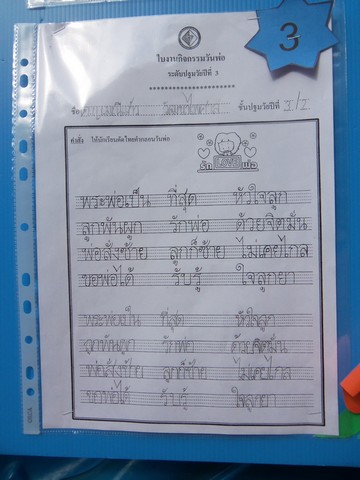 3
ใบงานกิจกรรมวันพ่อ
ระดับปฐมวัยปีที่ 3
ชื่อ ชั้นปฐมวัยปีที่ 3/2
คำสั่ง ให้นักเรียนคัดไทยคำกลอนวันพ่อ
รัก LOVE พ่อ
พระพ่อเป็น ที่สุด หัวใจลูก
ลูกพันผูก รักพ่อ ด้วยจิตมั่น
พ่อสั่งซ้าย ลูกก็ซ้าย ไม่เคยไกล
ขอพ่อได้ รับรู้ ใจลูกยา
พระพ่อเป็น ที่สุด หัวใจลูก
ลูกพันผูก รักพ่อ ด้วยจิตมั่น
พ่อสั่งซ้าย ลูกก็ซ้าย ไม่เคยไกล
ขอพ่อได้ รับรู้ ใจลูกยา